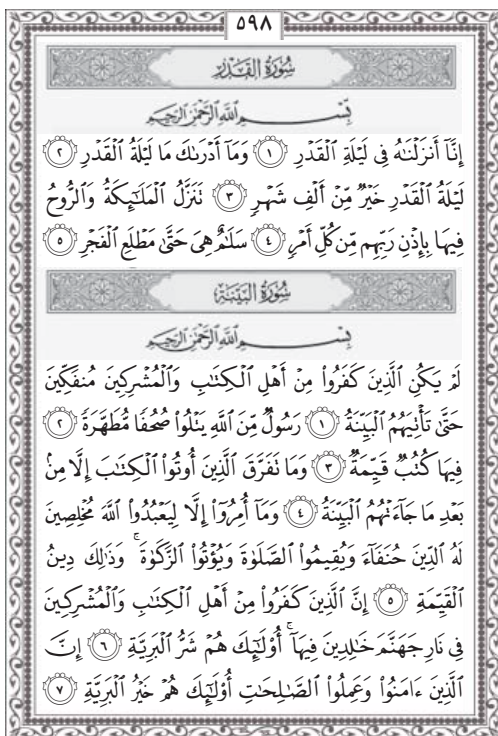 ٥٩٨
سُورَةُ القَدْرِ
بِسْمِ اللَّهِ الرَّحْمَٰنِ الرَّحِيمِ
إِنَّآ أَنزَلْنَٰهُ فِى لَيْلَةِ ٱلْقَدْرِ ١ وَمَآ أَدْرَىٰكَ مَا لَيْلَةُ ٱلْقَدْرِ ٢
لَيْلَةُ ٱلْقَدْرِ خَيْرٌ مِّنْ أَلْفِ شَهْرٍ ٣ تَنَزَّلُ ٱلْمَلَٰٓئِكَةُ وَٱلرُّوحُ
فِيهَا بِإِذْنِ رَبِّهِم مِّن كُلِّ أَمْرٍ ٤ سَلَٰمٌ هِىَ حَتَّىٰ مَطْلَعِ ٱلْفَجْرِ ٥
سُورَةُ البَيِّنَةِ
بِسْمِ اللَّهِ الرَّحْمَٰنِ الرَّحِيمِ
لَمْ يَكُنِ ٱلَّذِينَ كَفَرُوا۟ مِنْ أَهْلِ ٱلْكِتَٰبِ وَٱلْمُشْرِكِينَ مُنفَكِّينَ
حَتَّىٰ تَأْتِيَهُمُ ٱلْبَيِّنَةُ ١ رَسُولٌ مِّنَ ٱللَّهِ يَتْلُوا۟ صُحُفًا مُّطَهَّرَةً ٢
فِيهَا كُتُبٌ قَيِّمَةٌ ٣ وَمَا تَفَرَّقَ ٱلَّذِينَ أُوتُوا۟ ٱلْكِتَٰبَ إِلَّا مِنۢ
بَعْدِ مَا جَآءَتْهُمُ ٱلْبَيِّنَةُ ٤ وَمَآ أُمِرُوٓا۟ إِلَّا لِيَعْبُدُوا۟ ٱللَّهَ مُخْلِصِينَ
لَهُ ٱلدِّينَ حُنَفَآءَ وَيُقِيمُوا۟ ٱلصَّلَوٰةَ وَيُؤْتُوا۟ ٱلزَّكَوٰةَ ۚ وَذَٰلِكَ دِينُ
ٱلْقَيِّمَةِ ٥ إِنَّ ٱلَّذِينَ كَفَرُوا۟ مِنْ أَهْلِ ٱلْكِتَٰبِ وَٱلْمُشْرِكِينَ
فِى نَارِ جَهَنَّمَ خَٰلِدِينَ فِيهَآ ۚ أُو۟لَٰٓئِكَ هُمْ شَرُّ ٱلْبَرِيَّةِ ٦ إِنَّ
ٱلَّذِينَ ءَامَنُوا۟ وَعَمِلُوا۟ ٱلصَّٰلِحَٰتِ أُو۟لَٰٓئِكَ هُمْ خَيْرُ ٱلْبَرِيَّةِ ٧